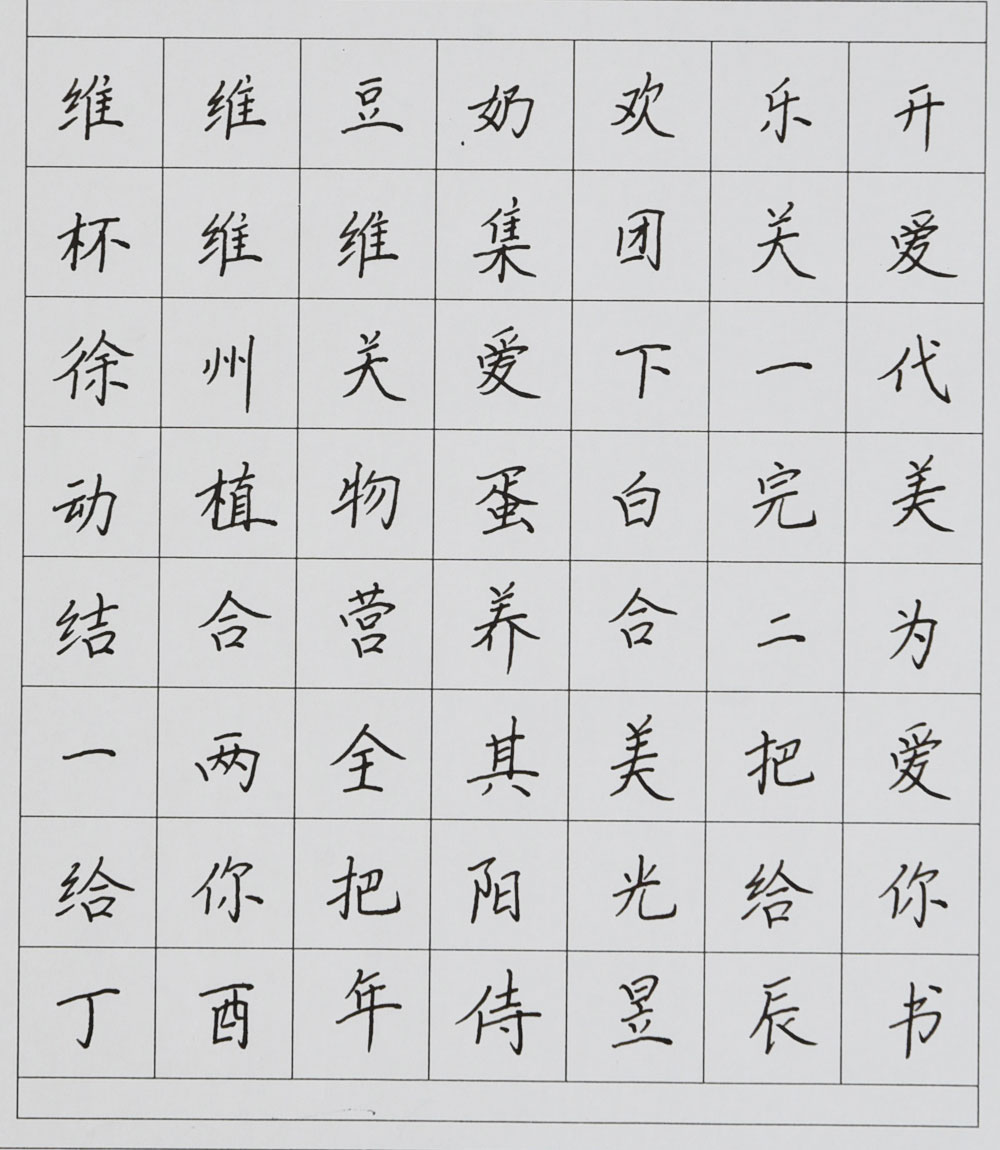 维维豆奶欢乐开
杯维维集团关爱
徐州关爱下一代
动植物蛋白完美
结合营养合二为
一两全其美把爱
给你把阳光给你
丁酉年侍昱辰书